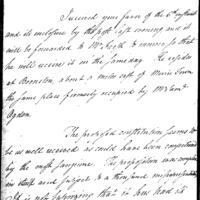 I received your favor of the 6th instant
and its enclosure by the post last evening and it
will be forwarded to Mr. tomorrow so that
he will receive it on the same day. He resides
at about a mile east of
the same place formerly occupied by Mr Saml
Ogden.
The proposed constitution seems to
be as well received as could have been expected
by the most sanguine. The proposition was complex
in itself and subject to a thousand
It is not surprising that it has had its